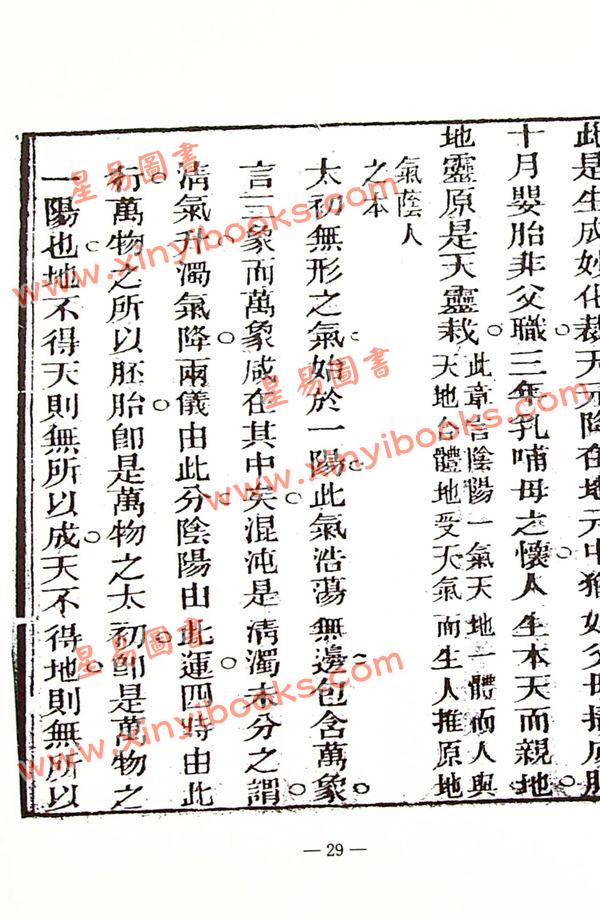 此是生成妙化裁天元降在地元中猶如父母
十月嬰胎非父職三年乳哺母之懷人生本天而親地
地靈原是天靈栽此章言陰陽一氣天地一體而人與
天地合體地受天氣而生人推原地
氣蔭人
之本
太初無形之氣始於一陽此氣浩蕩無邊包含萬象
言三象而萬象咸在其中矣混沌是清濁未分之謂
清氣升濁氣降兩儀由此分陰陽由此運四時由此
行萬物之所以胚胎卽是萬物之太初卽是萬物之
一陽也地不得天則無所以成天不得地則無所以
— 29 —
星易圖書
www.xinyibooks.com
星易圖書
www.xinyibooks.com
星易圖書
www.xinyibooks.com